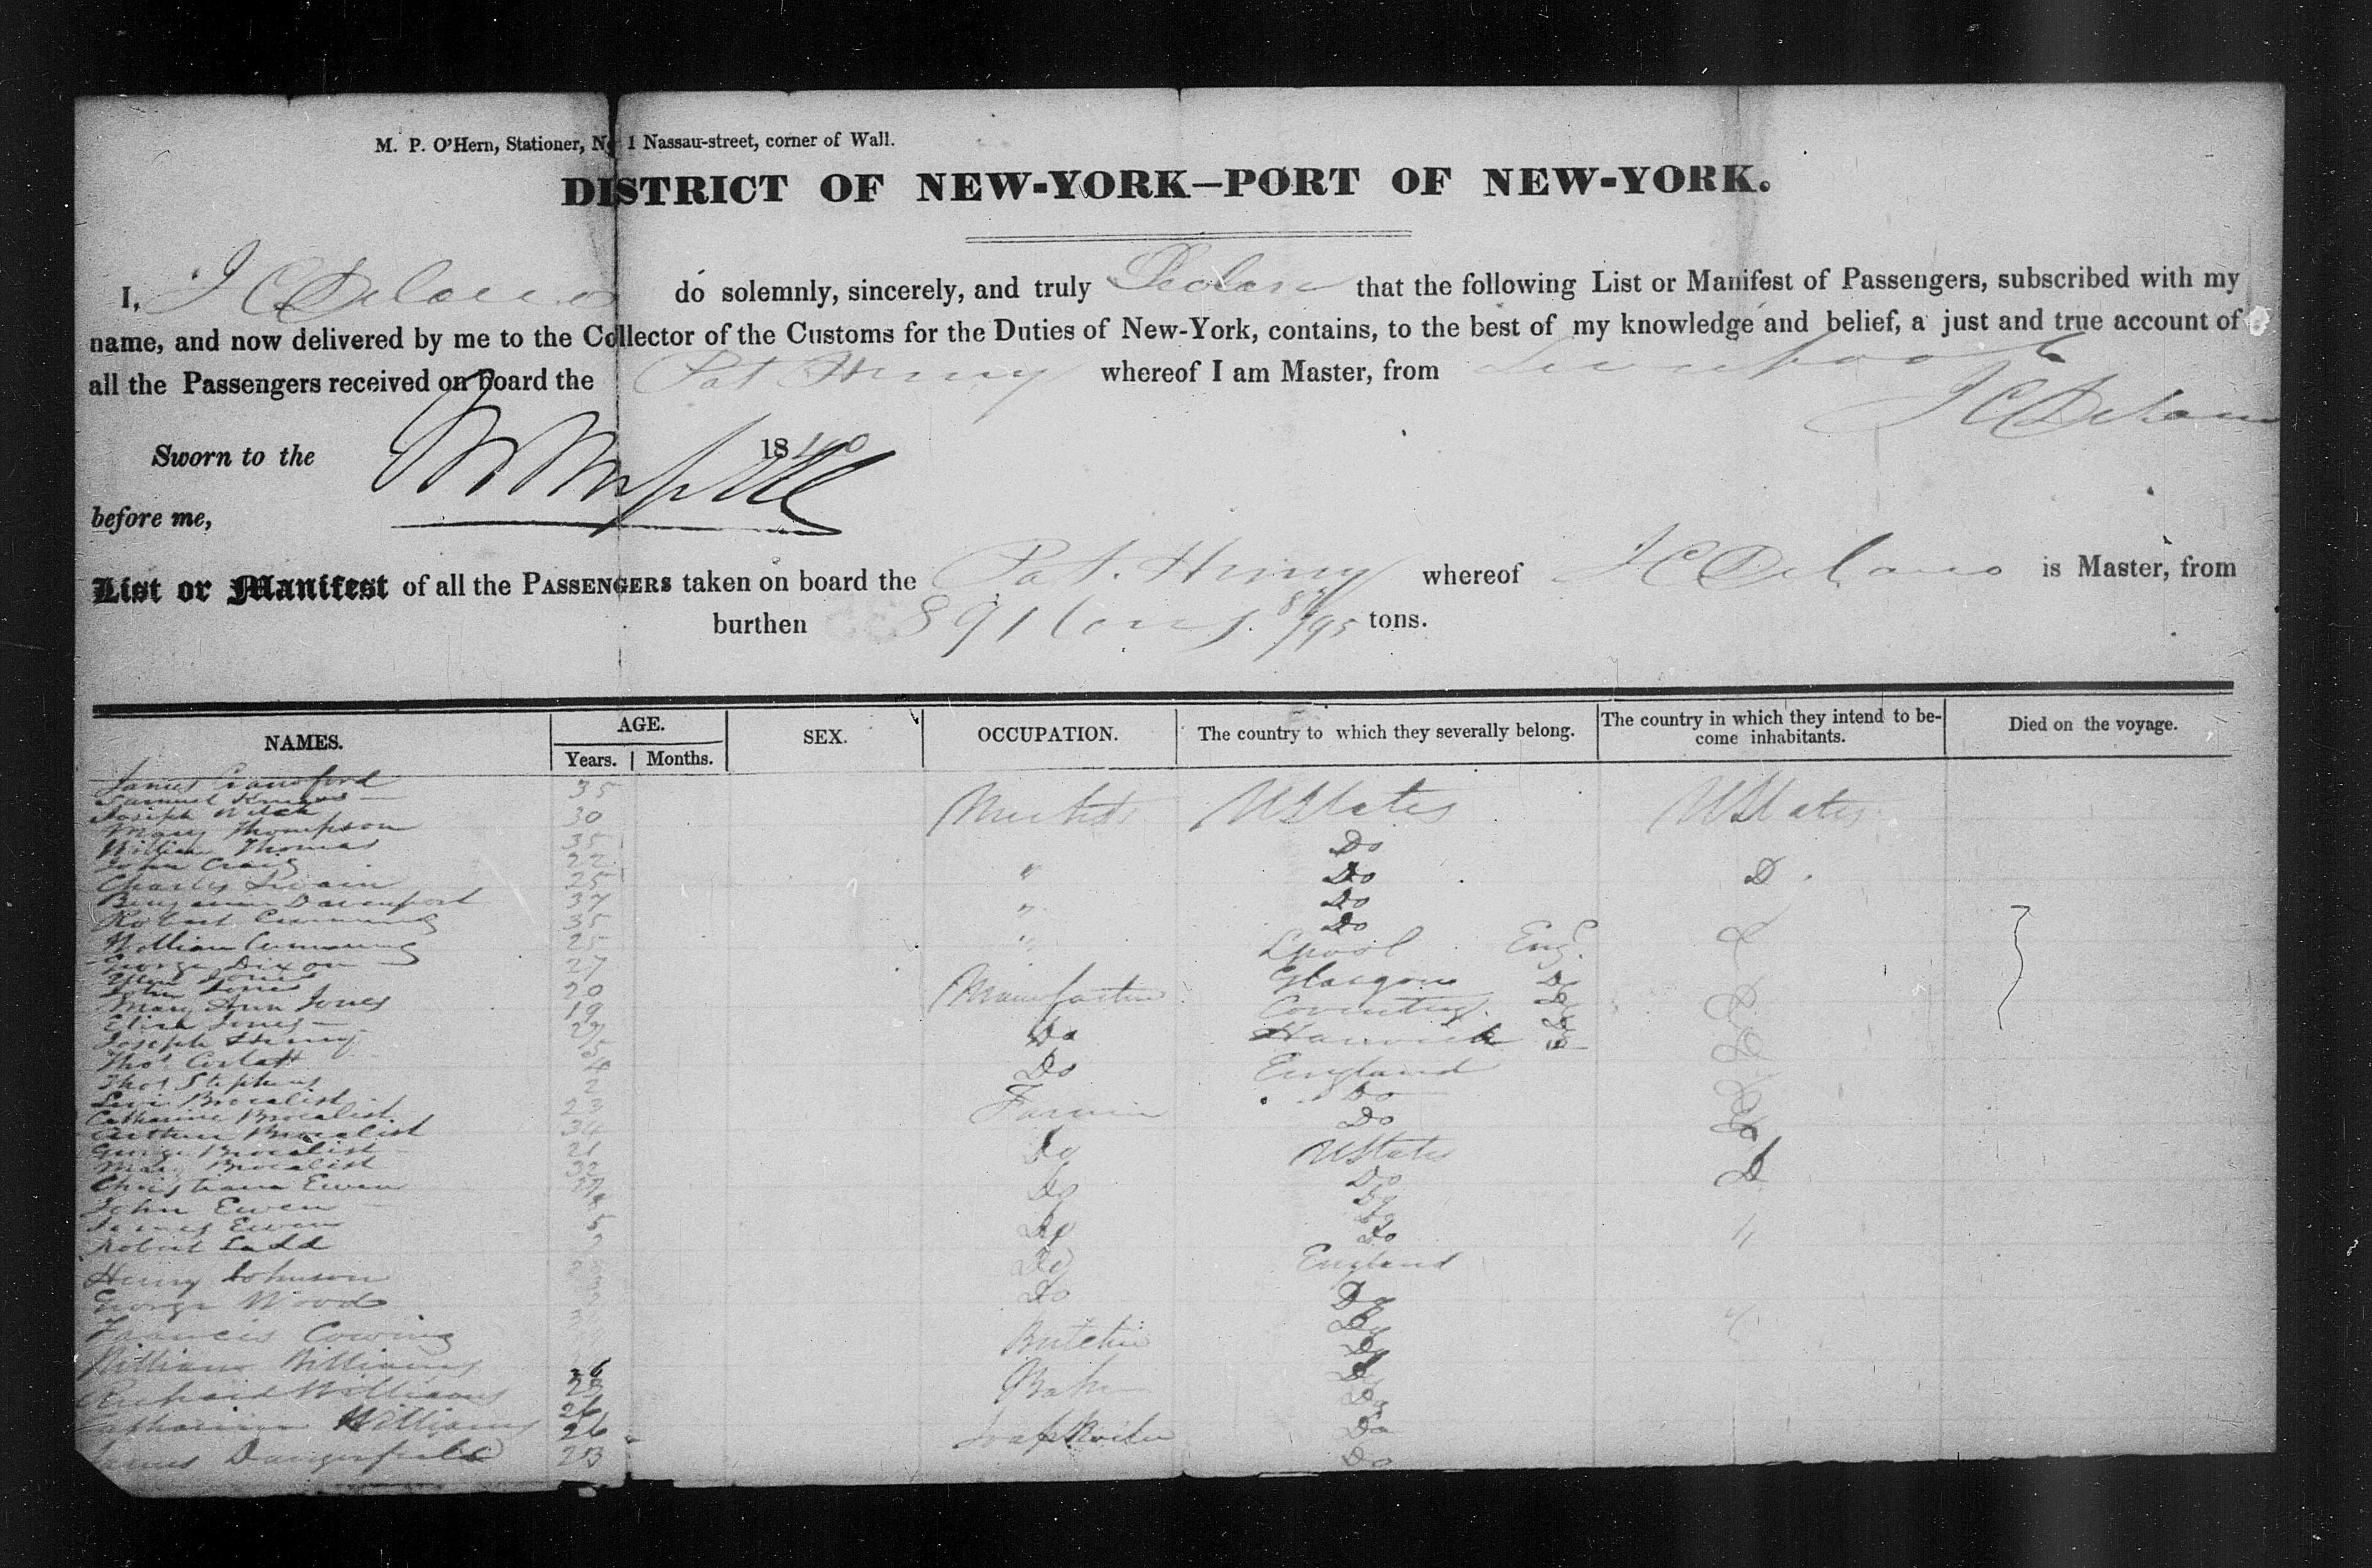 M. P. O'Hern, Stationer, No 1 Nassau-street, corner of Wall.
DISTRICT OF NEW-YORK—PORT OF NEW-YORK.
I, J C Delano do solemnly, sincerely, and truly that the following List or Manifest of Passengers, subscribed with my
name, and now delivered by me to the Collector of the Customs for the Duties of New-York, contains, to the best of my knowledge and belief, a just and true account of
all the Passengers received on board the Pat Henry whereof I am Master, from Liverpool
J C Delano
Sworn to the 1840
before me,
List or Manifest of all the PASSENGERS taken on board the Pat. Henry whereof J C Delano is Master, from
burthen 891 tons. /95 tons.
NAMES. AGE. SEX. OCCUPATION. The country to which they severally belong. The country in which they intend to be-come inhabitants. Died on the voyage.
Years. Months.
James Crawford 35
Samuel
Joseph 30 UStates UStates
Mary Thompson
William Thomas 35 Do
John Craig 22
Charles Swain 25 " Do D
Benjamin Davenport 37 " Do
Robert Cumming 35 Do
William Cumming 25 " Lpool Eng.
George Dixon 27
Jones Glasgow Do
John Jones 20 Manufacturer
Mary Ann Jones 19 Coventry
Eliza Jones 27 Do
Joseph Henry
Thos Corlatt Do England
Thos Stephens 2 Do
Levi Brocalist 23 Farmer Do
Catharine Brocalist 34
Arthur Brocalist
George Brocalist 21 Do UStates
Mary Brocalist 32 Do D
Christiana Ewen Do
John Ewen
James Ewen 5 Do Do "
Robert Ladd
Henry Johnson Do England
George Wood Do Do
Francis Cowing Butcher Do
William Williams 26 Do
Richard Williams 23 Baker Do
Catharine Williams 26 Do
26 Soap Boiler Do
James Dangerfield 23 Do